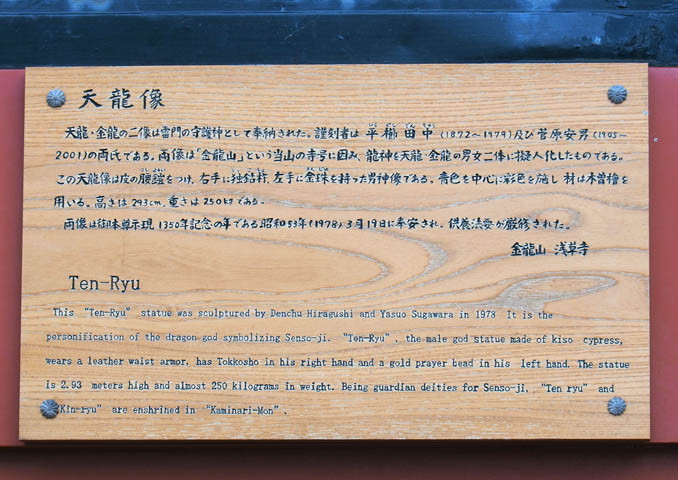 天龍像
天龍・金龍の二像は雷門の守護神として奉納された。謹刻者は 平櫛田中 (1872〜1979)及び菅原安男(1905〜
2001)の両氏である。両像は「金龍山」という当山の寺号に因み、龍神を天龍・金龍の男女二体に擬人化したものである。
この天龍像は皮の腰鎧をつけ、右手に独鈷杵、左手に金珠を持った男神像である。青色を中心に彩色を施し 材は木曽檜を
用いる。高さは 293cm、重さは 250kgである。
両像は御本尊示現 1350年記念の年である昭和53年(1978) 3月19日に奉安され、供養法要が厳修された。
金龍山 浅草寺
Ten-Ryu
This “Ten-Ryu” statue was sculptured by Denchu Hiragushi and Yasuo Sugawara in 1978 It is the
personification of the dragon god symbolizing Senso-ji. “Ten-Ryu”, the male god statue made of kiso cypress,
wears a leather waist armor, has Tokkosho in his right hand and a gold prayer bead in his left hand. The statue
is 2.93 meters high and almost 250 kilograms in weight. Being guardian deities for Senso-ji, “Ten ryu” and
“Kin-ryu” are enshrined in “Kaminari-Mon”.